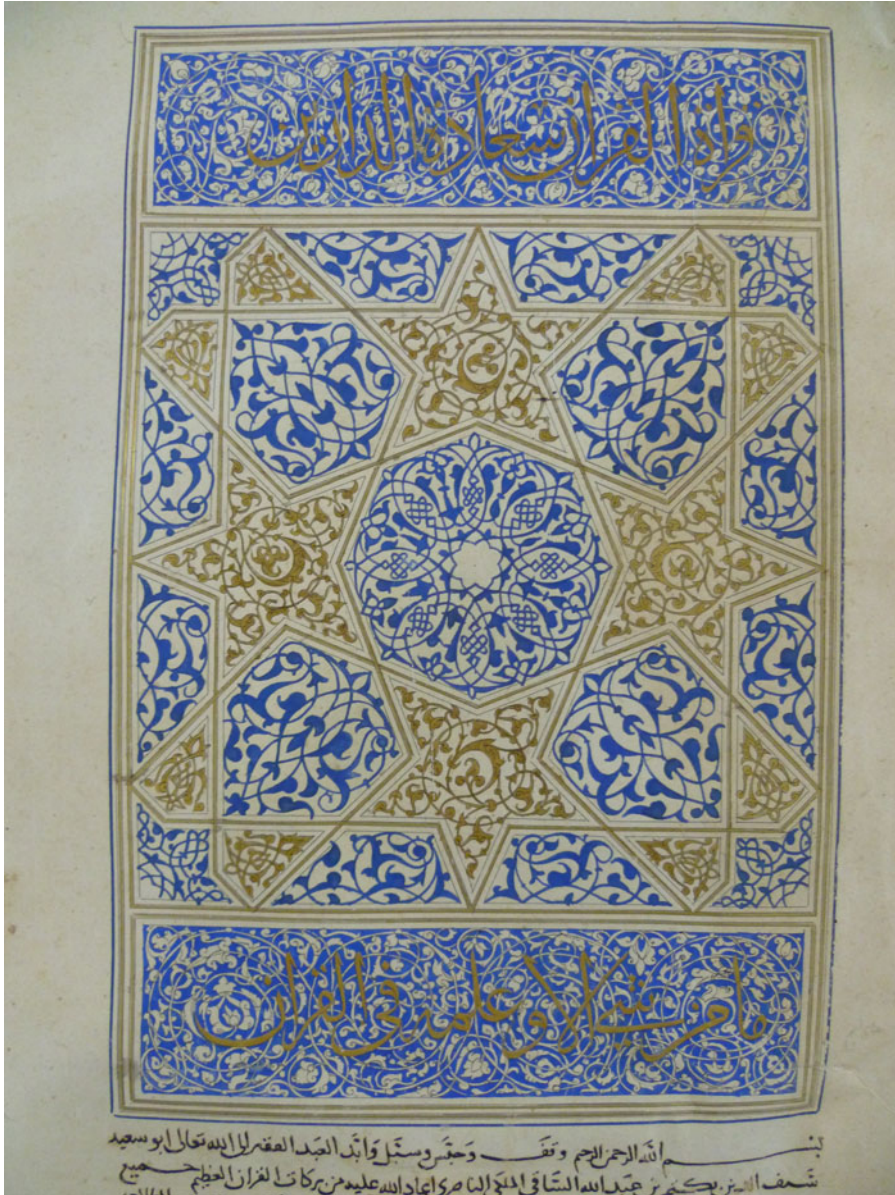 قراة القران سعادة الدارين
ما من شي الا وعلمه في القران
بسم الله الرحمن الرحيم وقف وحبس وسبل وابد العبد الفقير الى الله تعالى ابو سعيد
سيف الدين بكتمر بن عبد الله الساقي الملكي الناصري اعاد الله عليه من بركات القران العظيم جميع